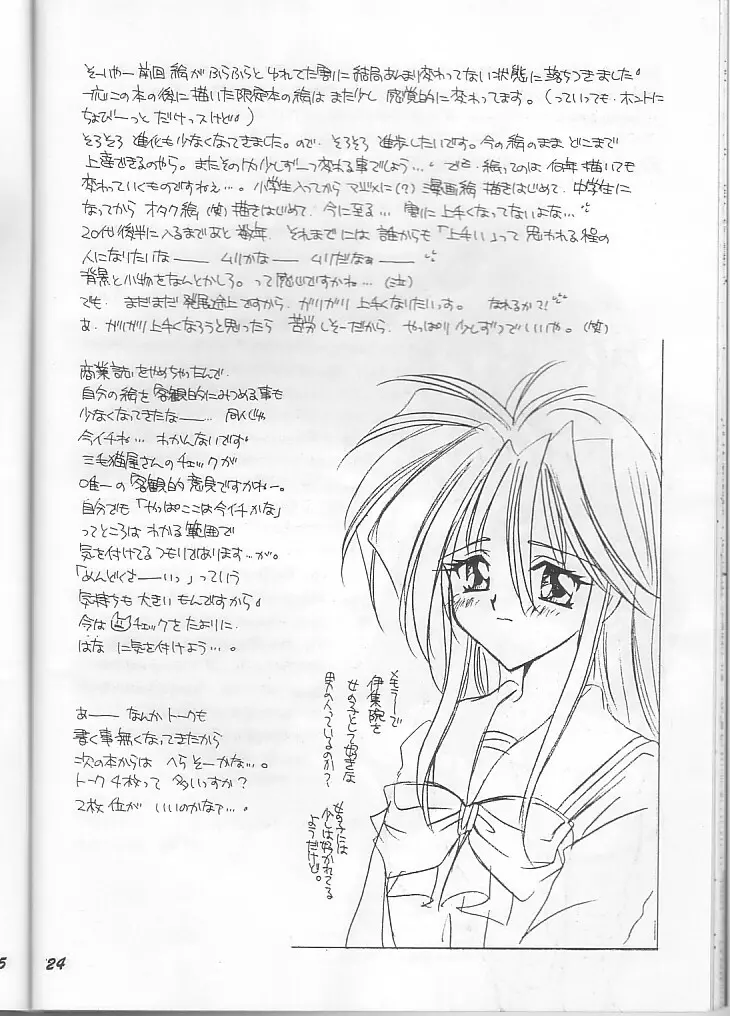 そーいやー前回 絵が ふらふらと ゆれてた割に 結局あんまり変わってない 状態に 落ちつきました。
一応この本の後に 描いた限定本の絵は また少し 感覚的に変わってます。(っていっても・ホントに
ちょびーっと だけっスけど。)
そろそろ 進化も少なくなってきました。ので・そろそろ 進歩したいです。今の絵のまま どこまで
上達できるのやら。またそのうち少しずーつ変わる事でしょう…。 でも・絵ってのは 何年 描いても
変わっていくものですねぇ…。小学生入ってから マジメに(?) 漫画絵 描きはじめて・中学生に
なってから オタク絵(笑) 描きはじめて・今に至る… 割に上手くなってないよな…
20代後半に入るまであと 数年・それまでには 誰からも「上手い」って 思われる程の
人になりたいなーー ムリかなー ムリだなぁー
背景と小物をなんとかしろ。って感じですかね…(泣)
でも・まだまだ 発展途上ですから・ガリガリ 上手くなりたいっす。 なれるか?!
あ・ガリガリ上手くなろうと思ったら 苦労しそーだから・やっぱり少しずつでいいや。(笑)
商業誌をやめちゃったんで・
自分の絵を 客観的にみつめる事も
少なくなってきたなー… 同人じゃ
今イチね… わかんないです。
三毛猫屋さんのチェックが
唯一の 客観的 意見ですかねー。
自分でも「やっぱここは今イチかな」
ってところは わかる 範囲で
気を付けてる つもりではあります…が。
「めんどくさーーいっ」っていう
気持ちも 大きい もんですから。
今は チェックを たよりに
はな に気を付けよう…。
あーー なんか トークも
書く事無くなってきたから
次の本からは へらそーかな…。
トーク4枚って 多いっすか?
2枚位が いいのかなァ…。
メモラーで
伊集院を
女の子として好きな
男の人っているのか?
女の子には
少しは好かれてる
ようだけど。
24
5